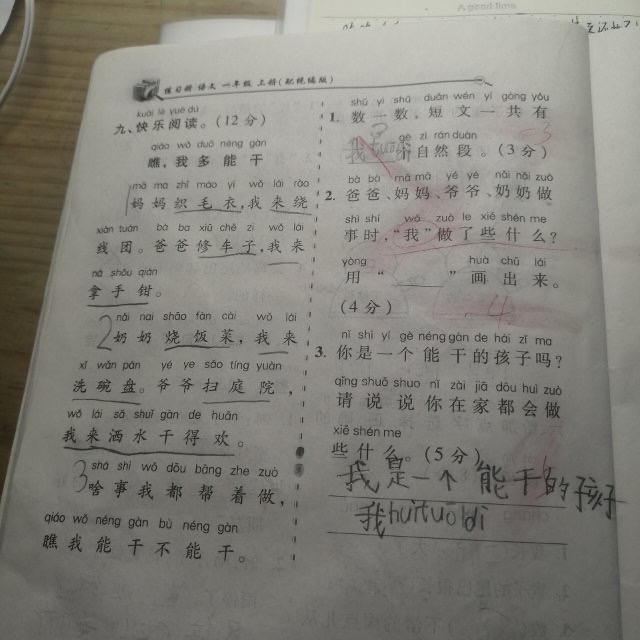 A good time
练习册 语文 一年级 上册(配统编版)
kuài lè yuè dú
九、快乐阅读。(12分)
qiáo wǒ duō néng gàn
瞧,我多能干
1 mā ma zhī máo yī wǒ lái rào
妈妈织毛衣,我来绕
xiàn tuán bà ba xiū chē zi wǒ lái
线团。爸爸修车子,我来
ná shǒu qián
拿手钳。
2 nǎi nai shāo fàn cài wǒ lái
奶奶烧饭菜,我来
xǐ wǎn pán yé ye sǎo tíng yuàn
洗碗盘。爷爷扫庭院,
wǒ lái sǎ shuǐ gàn de huān
我来洒水干得欢。
3 shá shì wǒ dōu bāng zhe zuò
啥事我都帮着做,
qiáo wǒ néng gàn bù néng gàn
瞧我能干不能干。
shǔ yi shǔ duǎn wén yí gòng yǒu
1. 数一数,短文一共有
-3
gè zì rán duàn
个自然段。(3分)
bà ba mā ma yé ye nǎi nai zuò
2. 爸爸、妈妈、爷爷、奶奶做
shì shí wǒ zuò le xiē shén me
事时,“我”做了些什么?
yòng huà chū lái
用“____”画出来。
(4分)
-4
nǐ shì yí gè néng gàn de hái zi ma
3. 你是一个能干的孩子吗?
qǐng shuō shuo nǐ zài jiā dōu huì zuò
请说说你在家都会做
xiē shén me
些什么。(5分)
我是一个能干的孩子
我huituōdi